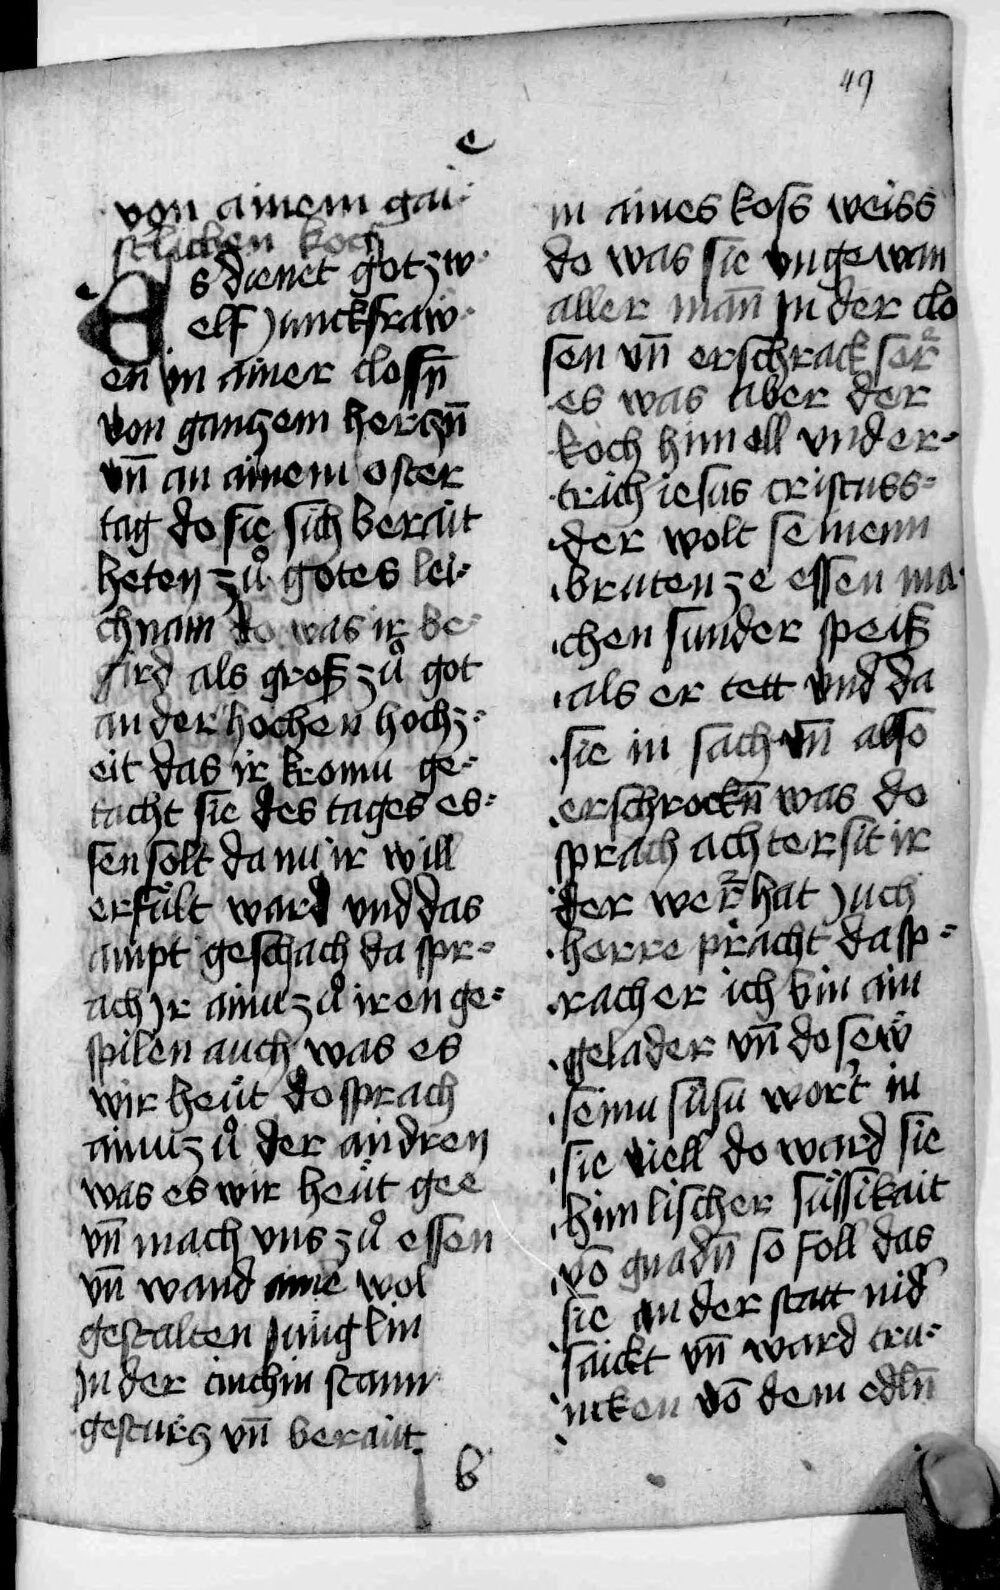 49
c
von ainem gai-
stlichen koch
Es dienet got zw-
elf junckfraw-
en in ainer clossn̄
von ganczem herczn̄
vn̄ an ainem oster
tag do sie sich beraüt
heten zů gotes lei-
chnam do was ir be-
gird als groß zů got
an der hochen hochz-
eit das ir kromu ge-
tacht sie des tages es-
sen solt da nu ir will
erfült ward vnd das
ampt geschach da spr-
ach jr ainu zů iren ge-
spilen auch was es
wir heüt do sprach
ainu zů der andren
was es wir heüt gee
vn̄ mach vns zů essen
vn̄ wand wol
gestalten jünglin
jn der cuchin stann
gesturcz vn̄ beraütt
b
in aines koss weiss
do was sie vngewan
aller man̄ jn der clo
sen vn̄ erschrack ser
es was aber der
koch himell vnd er-
trich iesus cristuss-
der wolt semenn
bruten ze essen ma-
chen sunder speiß
als er tett vnd da
sie in sach vn̄ also
erschrockn̄ was do
sprach achter sit ir
der wer hat juch
herre pracht da sp-
rach er ich bin ain
gelader vn̄ do sew
semu süsu wort in
sie viell do ward sie
himlischer süssikait
vō gnadn̄ so foll das
sie an der statt nid
saickt vn̄ ward tru-
ncken vō dem edln̄